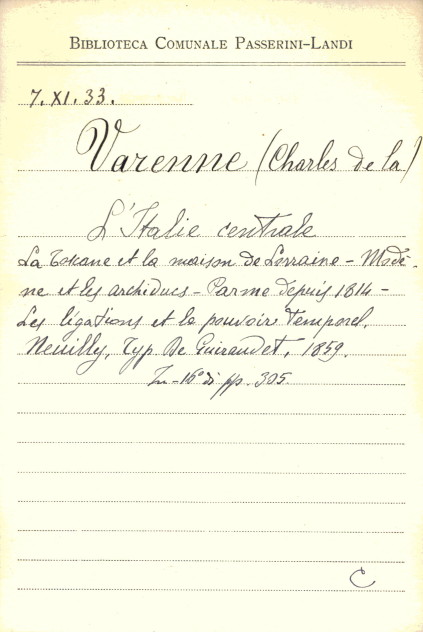 BIBLIOTECA COMUNALE PASSERINI-LANDI
7. XI. 33.
Varenne (Charles de la)
L'Italie centrale
La Toscane et la maison de Lorraine - Modè-
ne et les archiducs - Parme depuis 1814 -
Les légations et le pouvoir temporel.
Neuilly, Typ. De Guiraudet, 1859.
In-16° di pp. 305.
C